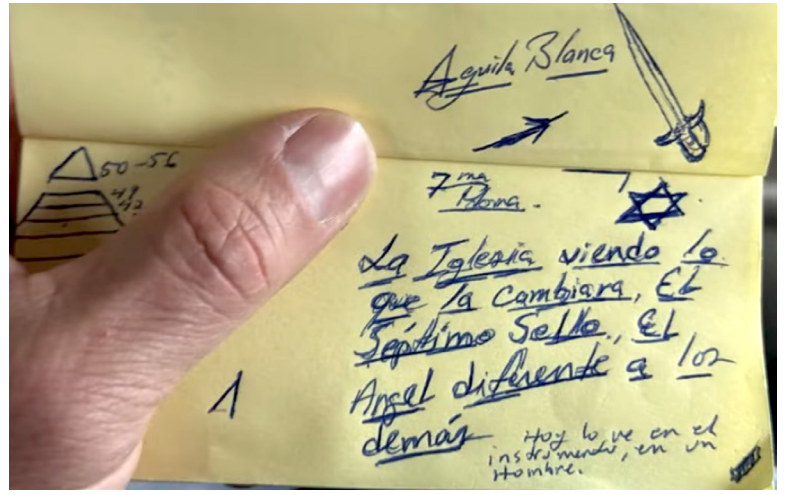 Aguila Blanca
50-56
49
42
7ma
Plana.
La Iglesia viendo lo
que la cambiara, El
Séptimo Sello, El
Angel diferente a los
demás
Hoy lo ve en el
instrumento, en un
Hombre.
1